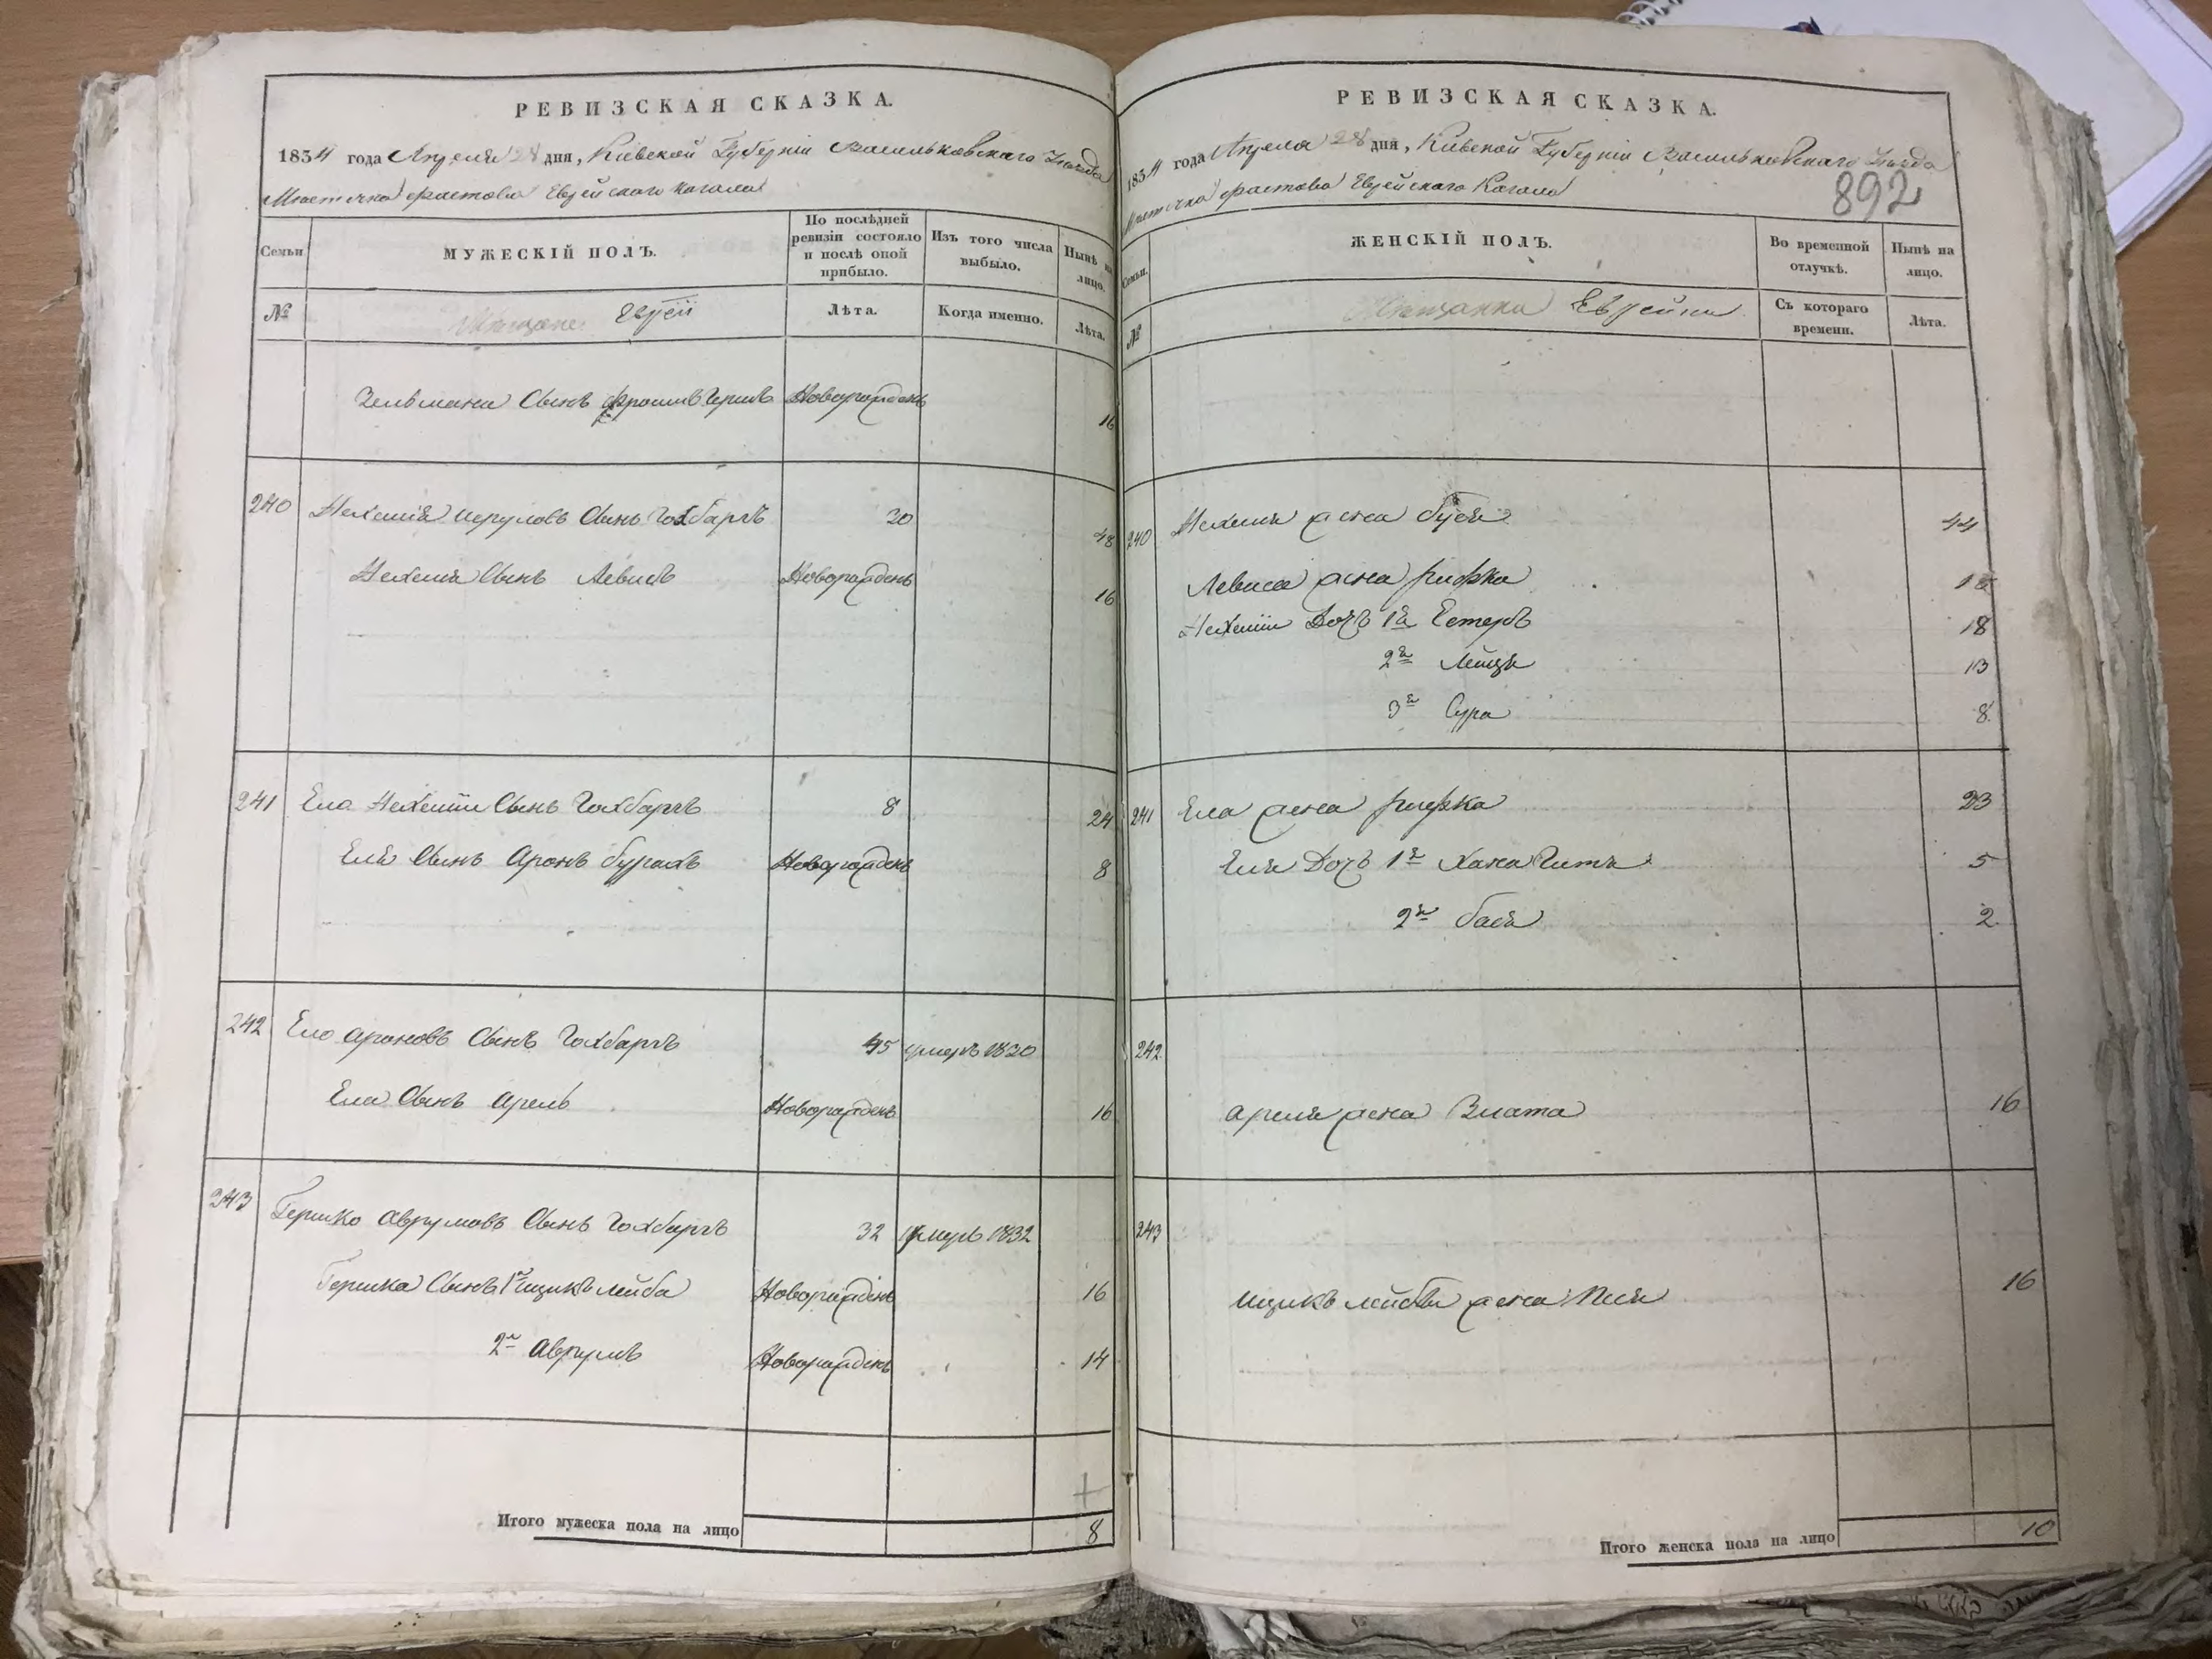 РЕВИЗСКАЯ СКАЗКА.
1834 года Апреля 28 дня, Кіевской Губерніи Васильковскаго Уезда
Местечка Фастова Еврейскаго Кагала
Семьи
МУЖЕСКІЙ ПОЛЪ.
По послѣдней ревизіи состояло и послѣ оной прибыло.
Изъ того числа выбыло.
Нынѣ на лицо.
№
Мещане Евреи
Лѣта.
Когда именно.
Лѣта.
Зельмана Сынъ Фроим Герш Новорожденъ 16
240 Нехемія Сынъ Гохбаргъ 30 48
Нехеми Сынъ Левисъ Новорожденъ 16
241 Ела Нехеміи Сынъ Гохбаргъ 8 24
Еля Сынъ Аронъ Бурахъ Новорожденъ 8
242 Ело Ароновъ Сынъ Гохбаргъ 45 умеръ 1830
Ела Сынъ Арель Новорожденъ 16
243 Гершко Аврумовъ Сынъ Гохбаргъ 32 умеръ 1832
Гершка Сынъ 1й Ицикъ Лейба Новорожденъ 16
2й Аврумъ Новорожденъ 14
Итого мужеска пола на лицо 8
РЕВИЗСКАЯ СКАЗКА.
1834 года Апреля 28 дня, Кіевской Губерніи Васильковскаго Уезда
Местечка Фастова Еврейскаго Кагала
892
Семьи.
ЖЕНСКІЙ ПОЛЪ.
Во временной отлучкѣ.
Нынѣ на лицо.
№
Мещанки Еврейки
Съ котораго времени.
Лѣта.
240 Нехемія жена Бруха 44
Левиса жена Рифка
Нехеміи Дочь 1я Естеръ 18
2я Лейця 13
3я Сура 8
241 Ела жена Рифка 23
Еля Дочь 1я Хана Гитя 5
2я Бася 2
242
Ареля жена Злата 16
243
Ицикъ Лейбы жена Песя 16
Итого женска пола на лицо 10